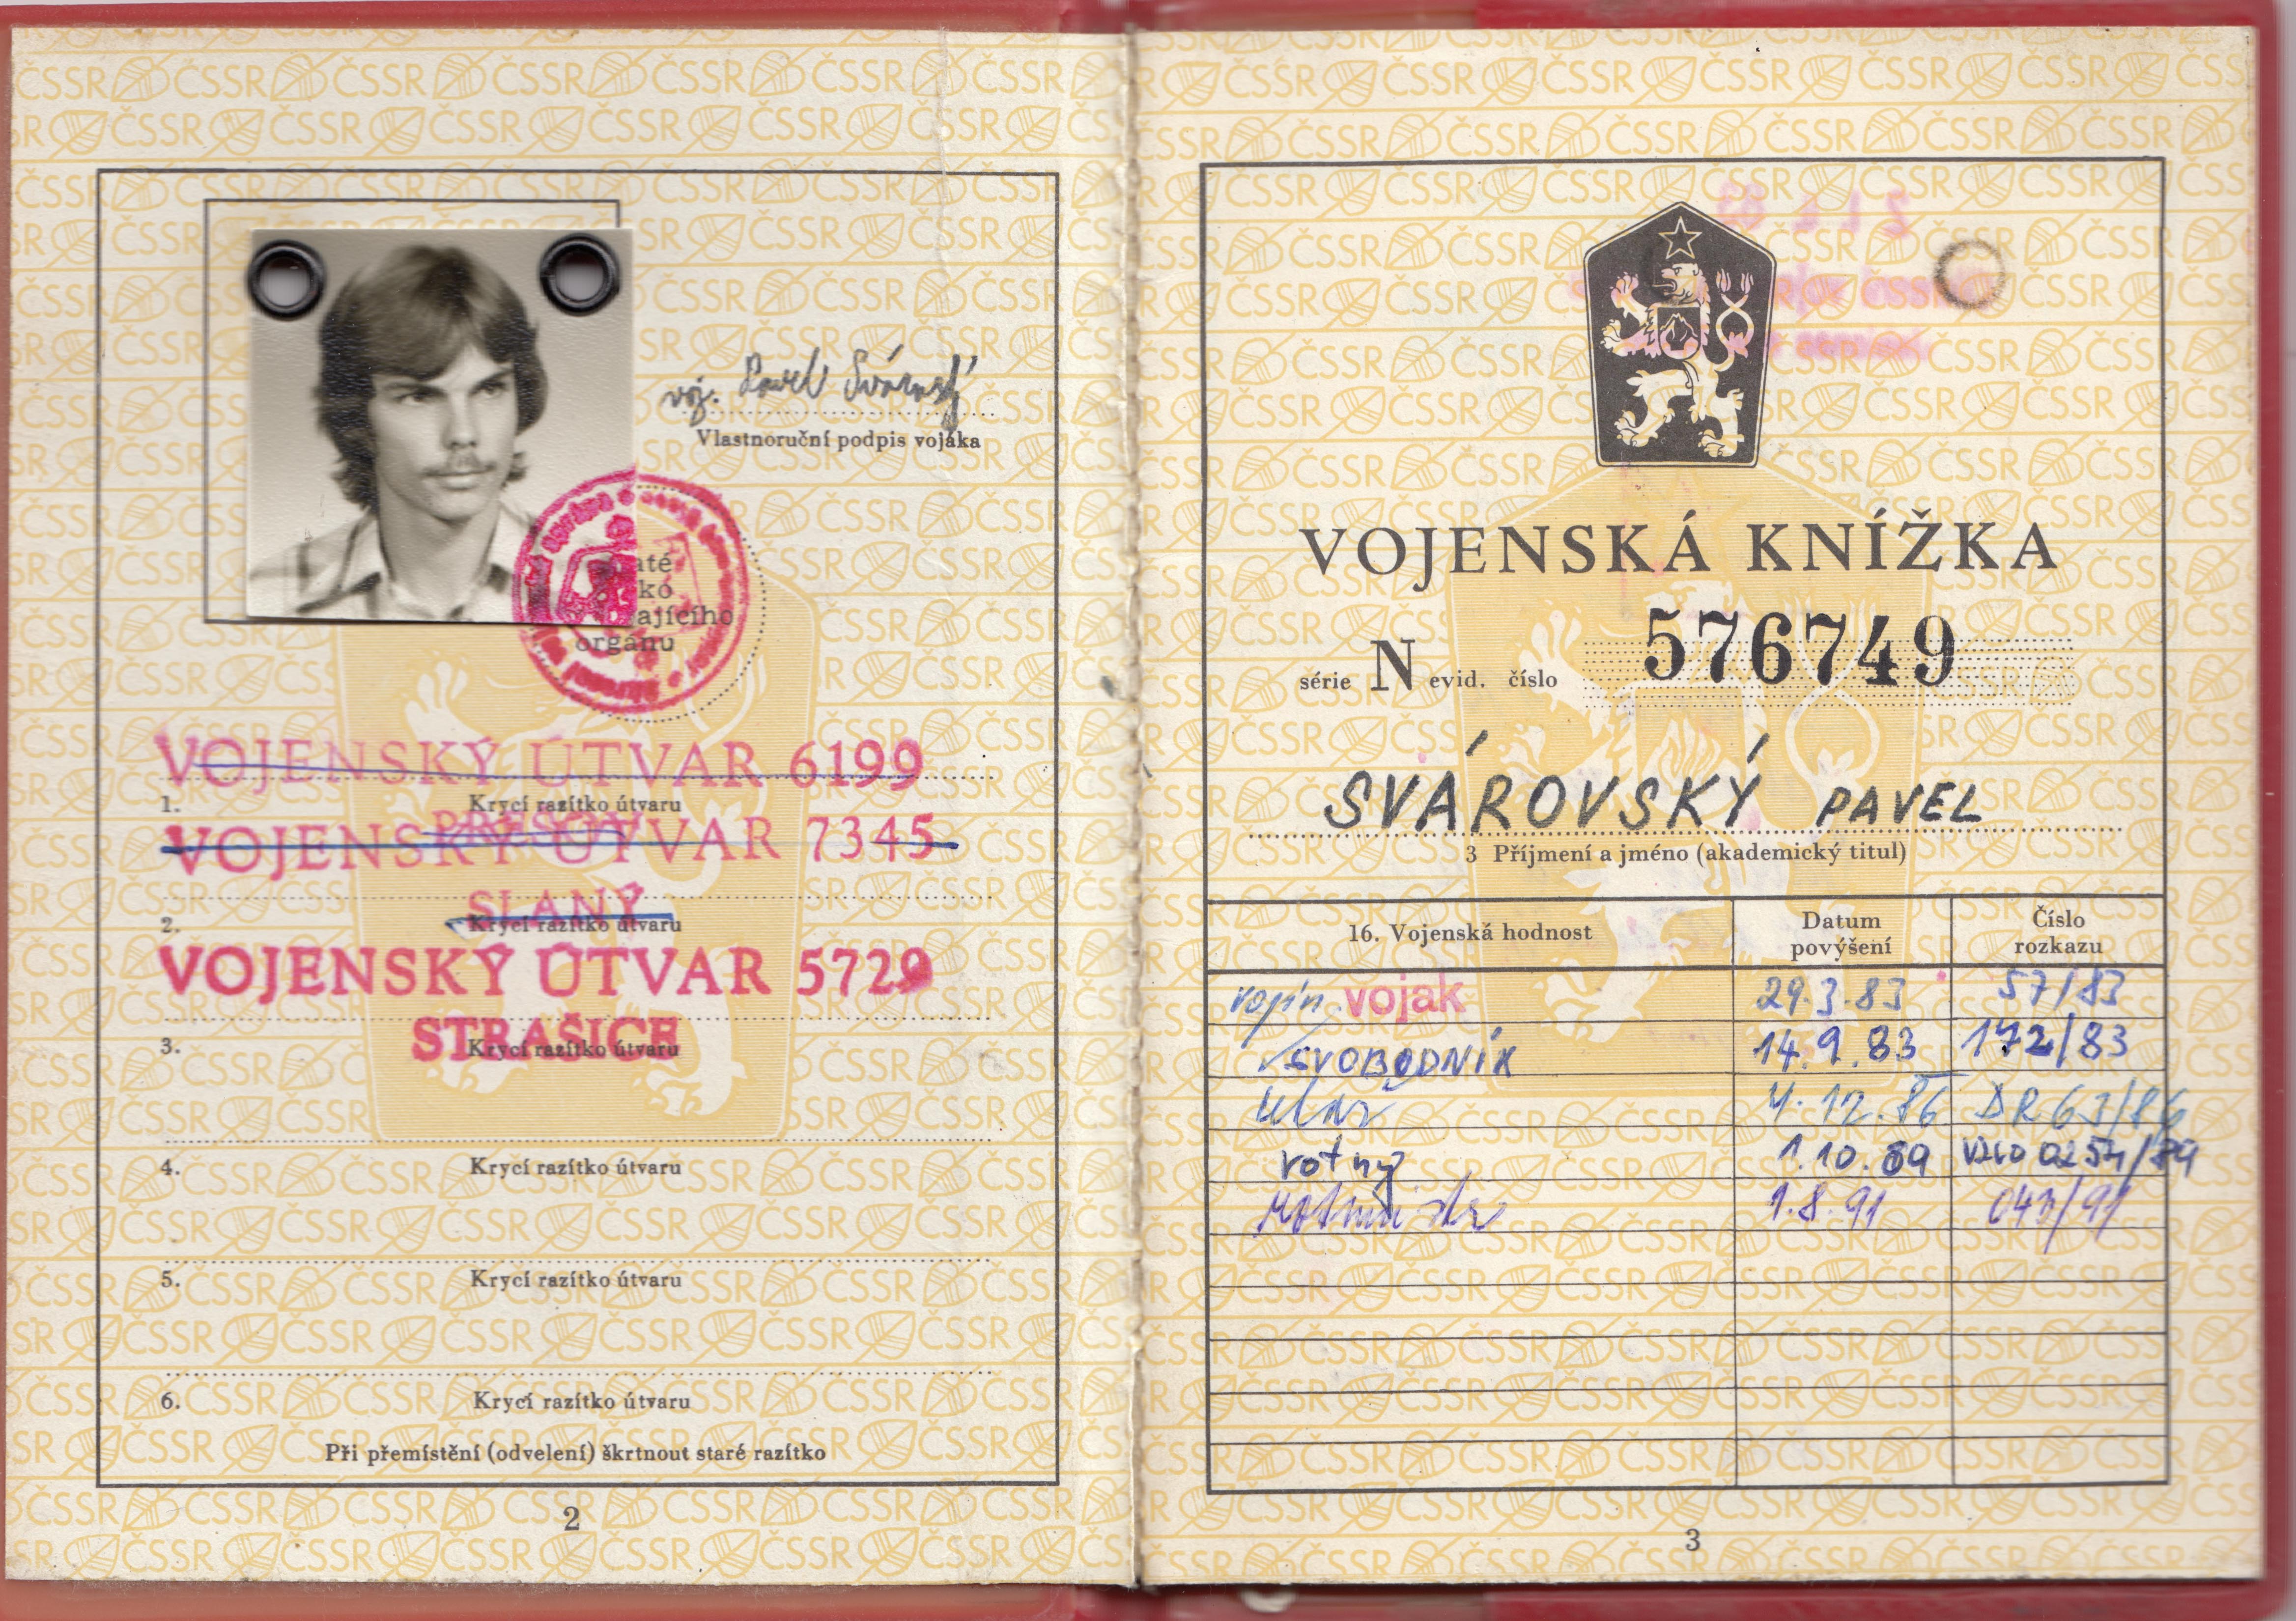 voj. Pavel Svárovský
Vlastnoruční podpis vojáka
orgánu
VOJENSKÝ ÚTVAR 6199
1. Krycí razítko útvaru
VOJENSKÝ ÚTVAR 7345
SLANÝ
2. Krycí razítko útvaru
VOJENSKÝ ÚTVAR 5729
STRAŠICE
3. Krycí razítko útvaru
4. Krycí razítko útvaru
5. Krycí razítko útvaru
6. Krycí razítko útvaru
Při přemístění (odvelení) škrtnout staré razítko
2
VOJENSKÁ KNÍŽKA
série N evid. číslo 576749
SVÁROVSKÝ PAVEL
3 Příjmení a jméno (akademický titul)
16. Vojenská hodnost Datum povýšení Číslo rozkazu
vojín vojak 29.3.83 57/83
SVOBODNÍK 14.9.83 172/83
4.12.86 DR 63/86
rotný 1.10.89
rotmistr 1.8.91 043/91
3